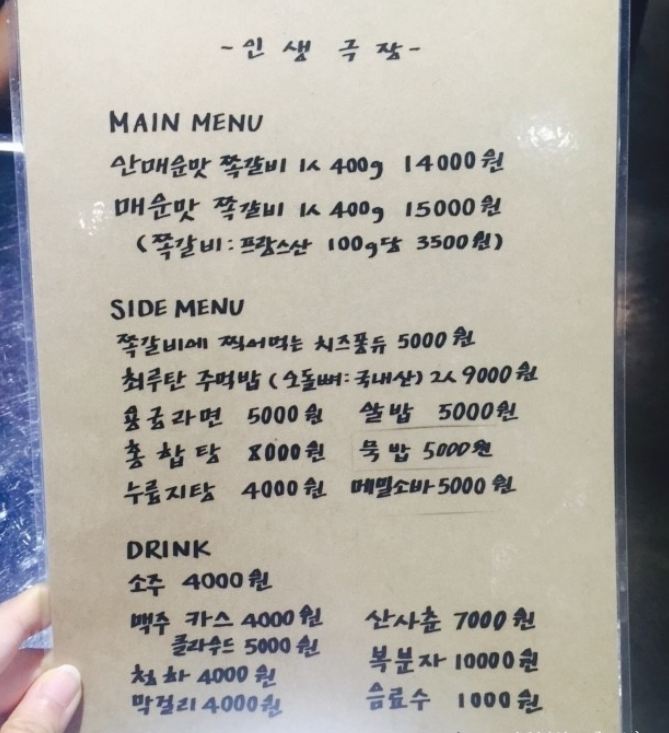 -인 생 극 장-
MAIN MENU
안매운맛 쪽갈비 1人 400g 14000원
매운맛 쪽갈비 1人 400g 15000원
(쪽갈비:프랑스산 100g당 3500원)
SIDE MENU
쪽갈비에 찍어먹는 치즈퐁듀 5000원
최루탄 주먹밥 (오돌뼈:국내산) 2人 9000원
용궁라면 5000원 쌀밥 5000원
홍합탕 8000원 묵밥 5000원
누룹지탕 4000원 메밀소바 5000원
DRINK
소주 4000원
맥주 카스 4000원 산사춘 7000원
클라우드 5000원
청하 4000원 복분자 10000원
막걸리 4000원 음료수 1000원